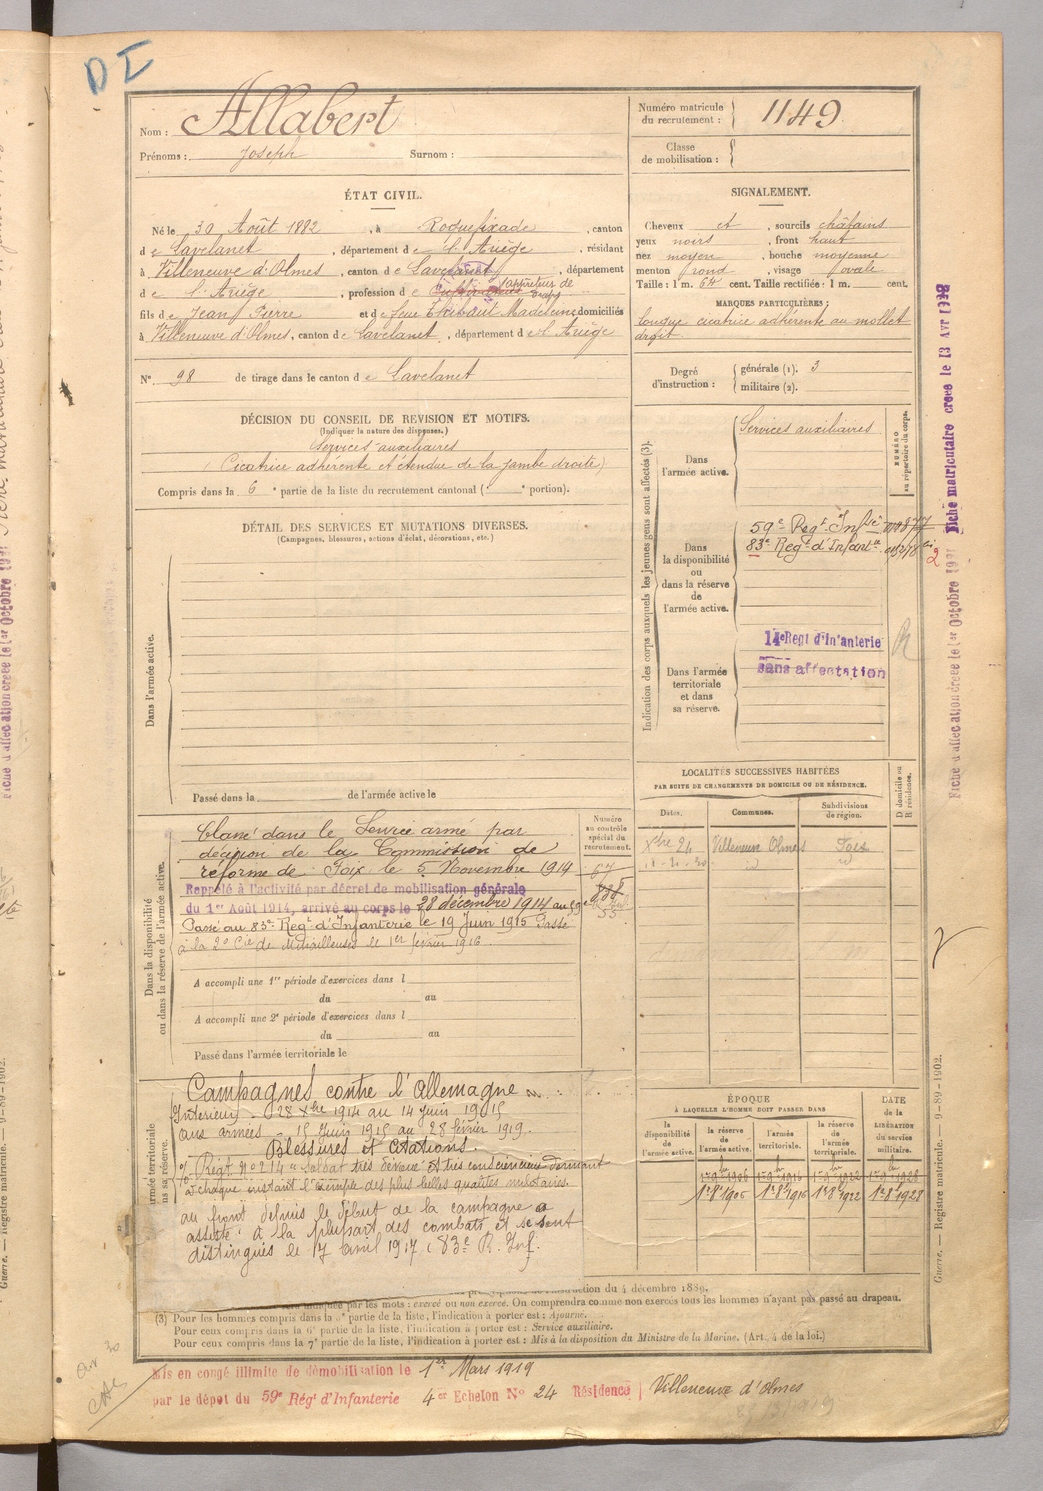 DI
Nom : Allabert
Prénoms : Joseph Surnom :
Numéro matricule du recrutement : 1149
Classe de mobilisation :
ÉTAT CIVIL.
Né le 30 Août 1882, à Roquefixade, canton
de Lavelanet, département de l'Ariège, résidant
à Villeneuve d'Olmes, canton de Lavelanet, département
de l'Ariège, profession de apprêteur de draps
fils de Jean Pierre et de feue Thibaut Madeleine domiciliés
à Villeneuve d'Olmes, canton de Lavelanet, département de l'Ariège
N° 98 de tirage dans le canton de Lavelanet
SIGNALEMENT.
Cheveux et, sourcils châtains
yeux noirs, front haut
nez moyen, bouche moyenne
menton rond, visage ovale
Taille : 1 m. 64 cent. Taille rectifiée : 1 m. cent.
MARQUES PARTICULIÈRES :
longue cicatrice adhérente au mollet
droit
Degré d'instruction : générale (1). 3
militaire (2).
DÉCISION DU CONSEIL DE REVISION ET MOTIFS.
(Indiquer la nature des dispenses.)
Services auxiliaires
Cicatrice adhérente et étendue de la jambe droite)
Compris dans la 6e partie de la liste du recrutement cantonal ( e portion).
DÉTAIL DES SERVICES ET MUTATIONS DIVERSES.
(Campagnes, blessures, actions d'éclat, décorations, etc.)
Dans l'armée active.
Passé dans la de l'armée active le
Indication des corps auxquels les jeunes gens sont affectés (3).
NUMÉRO au répertoire du corps.
Dans l'armée active.
Services auxiliaires
Dans la disponibilité ou dans la réserve de l'armée active.
59e Regt Infie
83e Regt d'Infante
2
Dans l'armée territoriale et dans sa réserve.
14e Regt d'Infanterie
sans affectation
LOCALITÉS SUCCESSIVES HABITÉES
PAR SUITE DE CHANGEMENTS DE DOMICILE OU DE RÉSIDENCE.
Dates. Communes. Subdivisions de région. D domicile ou R résidence.
Xbre 24 Villeneuve Olmes Foix
id id
Dans la disponibilité ou dans la réserve de l'armée active.
Numéro au contrôle spécial du recrutement.
Classé dans le Service armé par
décision de la Commission de
réforme de Foix le 5 Novembre 1914
Rappelé à l'activité par décret de mobilisation générale
du 1er Août 1914, arrivé au corps le 28 décembre 1914 au 59e
Passé au 83e Regt d'Infanterie le 19 Juin 1915 Passé
à la 2e Cie de Mitrailleuses le 1er février 1916
A accompli une 1re période d'exercices dans l
du au
A accompli une 2e période d'exercices dans l
du au
Passé dans l'armée territoriale le
Campagnes contre l'Allemagne
Intérieur - 28 Xbre 1914 au 14 Juin 1915
aux armées - 15 Juin 1915 au 28 février 1919.
Blessures et Citations.
O/ Régt n° 214 "soldat très sérieux et très consciencieux donnant
à chaque instant l'exemple des plus belles qualités militaires.
au front depuis le début de la campagne a
assisté à la plupart des combats et se sont
distingués le 17 avril 1917 83e R. Inf.
ÉPOQUE
À LAQUELLE L'HOMME DOIT PASSER DANS
DATE de la LIBÉRATION du service militaire.
la disponibilité de l'armée active. la réserve de l'armée active. l'armée territoriale. la réserve de l'armée territoriale.
1er 8bre 1906 1er 8bre 1916 1er 8bre 1922 1er 8bre 1928
du 4 décembre 1889.
par les mots : exercé ou non exercé. On comprendra comme non exercés tous les hommes n'ayant pas passé au drapeau.
(3) Pour les hommes compris dans la 5e partie de la liste, l'indication à porter est : Ajourné.
Pour ceux compris dans la 6e partie de la liste, l'indication à porter est : Service auxiliaire.
Pour ceux compris dans la 7e partie de la liste, l'indication à porter est : Mis à la disposition du Ministre de la Marine. (Art. 4 de la loi.)
Mis en congé illimité de démobilisation le 1er Mars 1919
par le dépôt du 59e Régt d'Infanterie 4er Echelon N° 24 Résidence Villeneuve d'Olmes
Fiche matriculaire créée le 13 Avr
Fiche d'affectation créée le 1er Octobre
Guerre. — Registre matricule. — 9-89-1902.